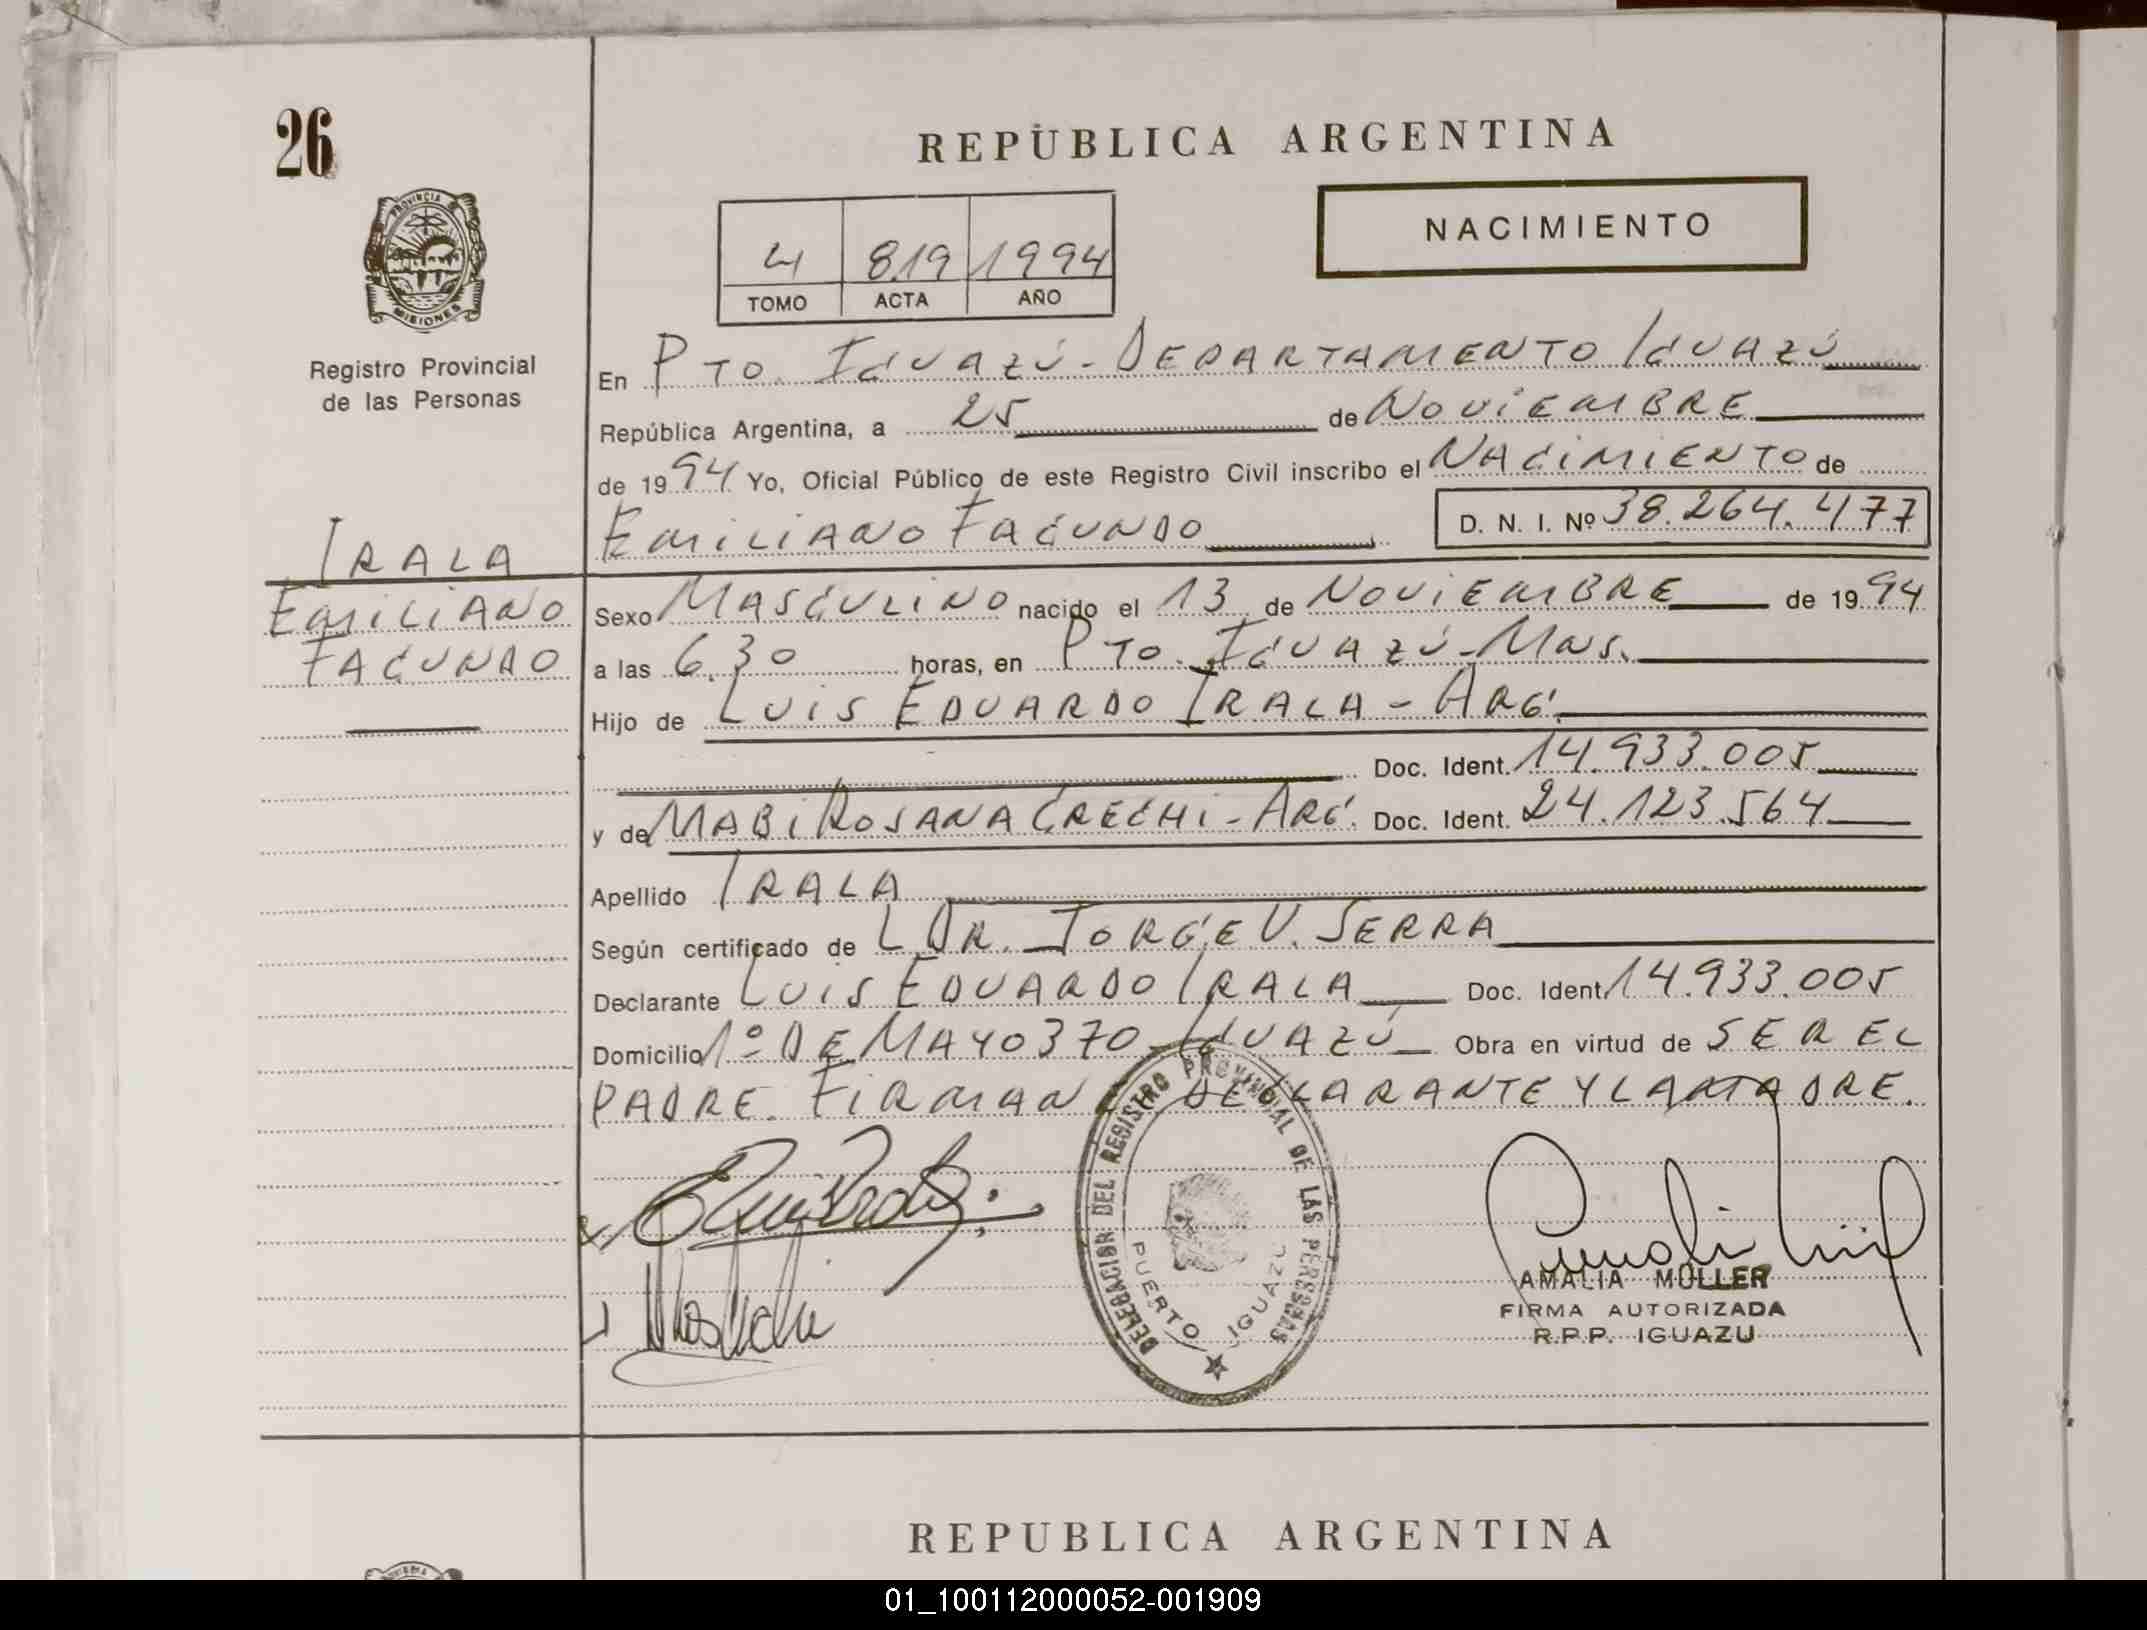 26
REPÚBLICA ARGENTINA
NACIMIENTO
4 819 1994
TOMO ACTA AÑO
PROVINCIA
MISIONES
Registro Provincial
de las Personas
En PTO. IGUAZÚ - DEPARTAMENTO IGUAZÚ
República Argentina, a 25 de NOVIEMBRE
de 1994 Yo, Oficial Público de este Registro Civil inscribo el NACIMIENTO de
EMILIANO FACUNDO D. N. I. Nº 38.264.477
IRALA
EMILIANO
FACUNDO
Sexo MASCULINO nacido el 13 de NOVIEMBRE de 1994
a las 6.30 horas, en PTO. IGUAZÚ - MNS.
Hijo de LUIS EDUARDO IRALA - ARG.
Doc. Ident. 14.933.005
y de MABI ROSANA CRECHI - ARG. Doc. Ident. 24.123.564
Apellido IRALA
Según certificado de L DR. JORGE V. SERRA
Declarante LUIS EDUARDO IRALA Doc. Ident. 14.933.005
Domicilio 1º DE MAYO 370 - IGUAZÚ Obra en virtud de SER EL
PADRE. FIRMAN DECLARANTE Y LA MADRE.
DELEGACION DEL REGISTRO PROVINCIAL DE LAS PERSONAS
PUERTO IGUAZU
AMALIA MÜLLER
FIRMA AUTORIZADA
R.P.P. IGUAZU
REPUBLICA ARGENTINA
01_100112000052-001909